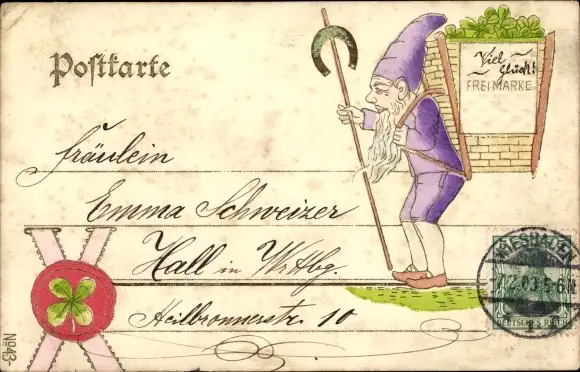 Postkarte
Viel
Glück!
FREIMARKE
Fräulein
Emma Schweizer
Hall in Wrttbg.
Heilbronnerstr. 10
WIESBADEN
DEUTSCHES REICH
No 43